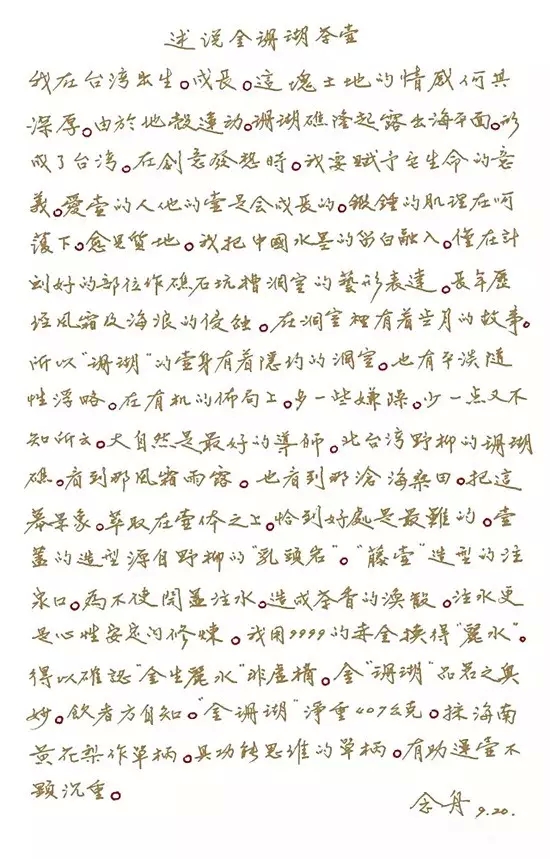 述说金珊瑚茶壹
我在台湾出生。成長。這塊土地的情感何其
深厚。由於地殼運動。珊瑚礁隆起露出海平面。形
成了台湾。在創意發想時。我要賦予它生命的意
義。愛壹的人他的壹是会成長的。鍛錘的肌理在呵
護下。愈見質地。我把中國水墨的留白融入。僅在計
划好的部位作礁石坑槽洞窒的藝形表達。長年歷
经風霜及海浪的侵蝕。在洞窒裡有着岁月的故事。
所以“珊瑚”的壹身有着隱約的洞窒。也有平淡隨
性浮略。在有机的佈局上。多一些嫌躁。少一点又不
知所云。大自然是最好的導師。北台湾野柳的珊瑚
礁。看到那風霜雨露。也看到那滄海桑田。把這
幕景象。萃取在壹体之上。恰到好處是最難的。壹
蓋的造型源自野柳的“乳頭岩”。“藤壹”造型的注
泉口。為不使開蓋注水。造成茶香的渙散。注水更
是心性安定的修煉。我用9999的赤金换得“麗水”。
得以確認“金生麗水”非虚構。金“珊瑚”品茗之奥
妙。飲者方自知。“金珊瑚”淨重407公克。採海南
黄花梨作單柄。具功能思維的單柄。有助運壹不
顯沉重。
念舟 9.20.